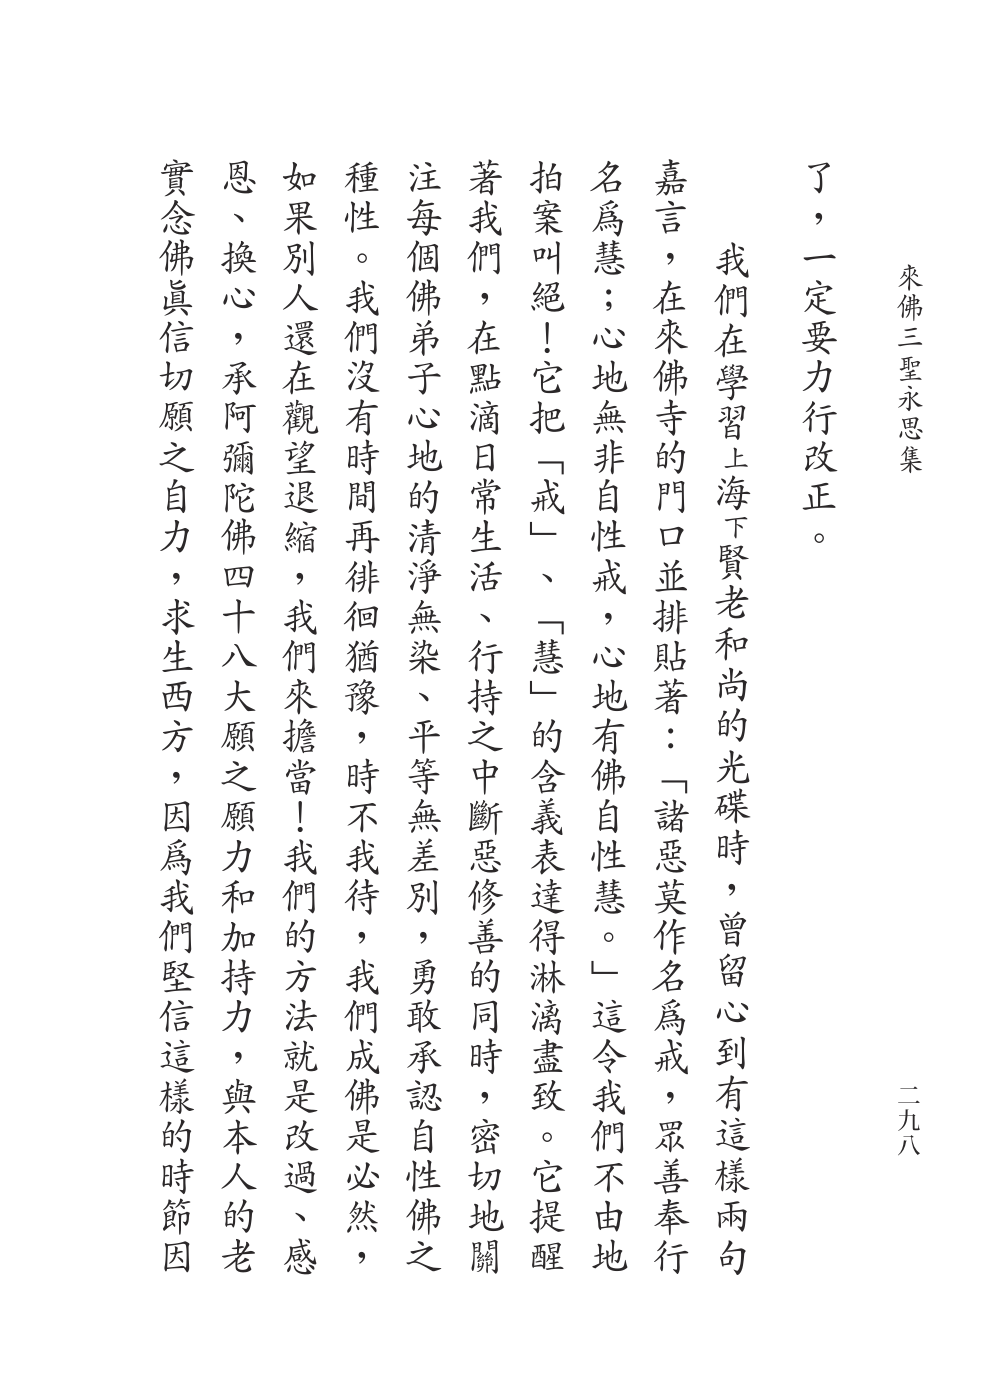 來佛三聖永思集
二九八
了，一定要力行改正。
我們在學習上海下賢老和尚的光碟時，曾留心到有這樣兩句
嘉言，在來佛寺的門口並排貼著：「諸惡莫作名爲戒，眾善奉行
名爲慧；心地無非自性戒，心地有佛自性慧。」這令我們不由地
拍案叫絕！它把「戒」、「慧」的含義表達得淋漓盡致。它提醒
著我們，在點滴日常生活、行持之中斷惡修善的同時，密切地關
注每個佛弟子心地的清淨無染、平等無差別，勇敢承認自性佛之
種性。我們沒有時間再徘徊猶豫，時不我待，我們成佛是必然，
如果別人還在觀望退縮，我們來擔當！我們的方法就是改過、感
恩、換心，承阿彌陀佛四十八大願之願力和加持力，與本人的老
實念佛眞信切願之自力，求生西方，因爲我們堅信這樣的時節因